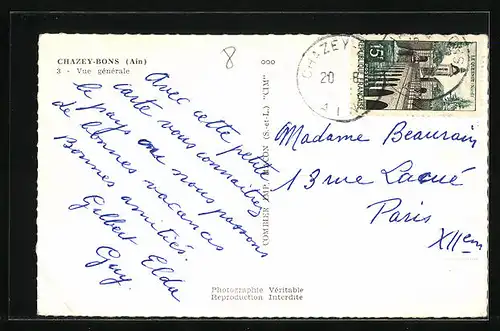 CHAZEY-BONS (Ain)
3 - Vue générale
8
Avec cette petite
carte vous connaitrez
le pays où nous passons
de bonnes vacances
Bonnes amitiés.
Gilbert Elda
Guy.
COMBIER IMP. MACON (S.-et-L.) "CIM"
CHAZEY-
20 8
AI
15F
Madame Beaurain
13 rue Lacué
Paris
XIIem
Photographie Véritable
Reproduction Interdite